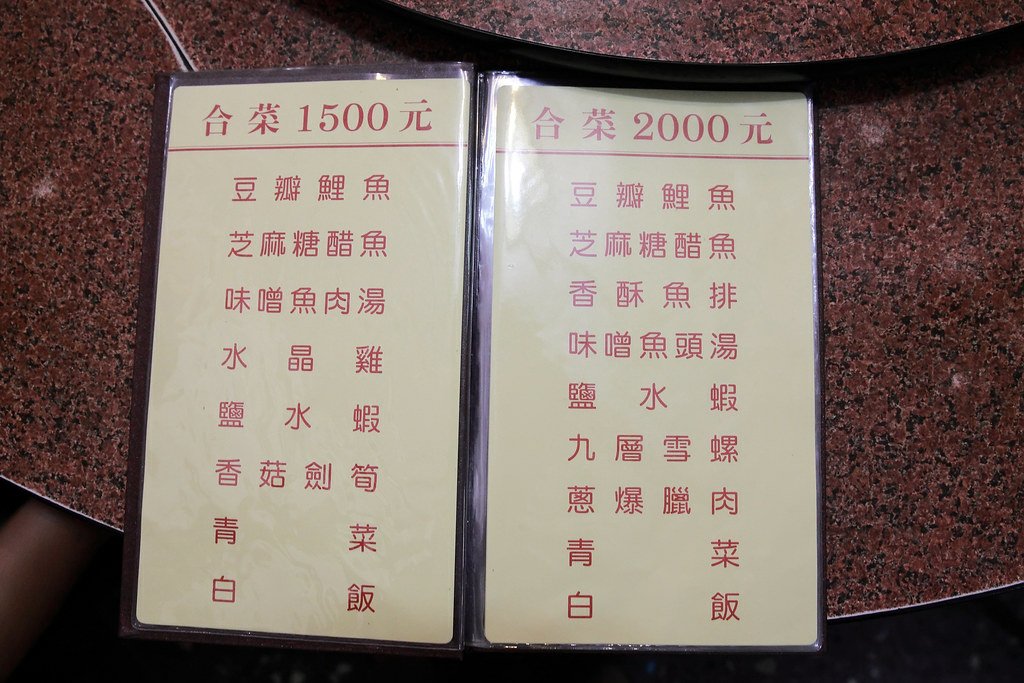 合菜1500元
豆瓣鯉魚
芝麻糖醋魚
味噌魚肉湯
水晶雞
鹽水蝦
香菇劍筍
青菜
白飯
合菜2000元
豆瓣鯉魚
芝麻糖醋魚
香酥魚排
味噌魚頭湯
鹽水蝦
九層雪螺
蔥爆臘肉
青菜
白飯